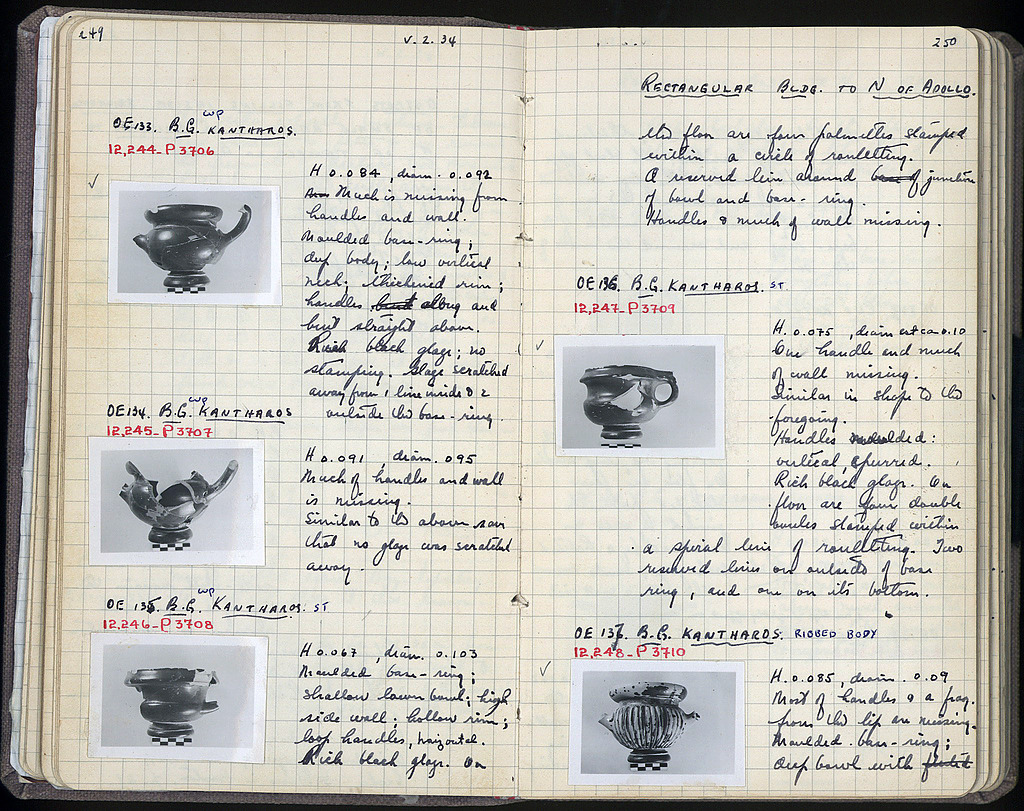 249
V. 2. 34
WP
OE 133. B.G. KANTHAROS.
12,244-P 3706
H 0.084, diam. 0.092
Much is missing from
handles and wall.
Moulded base-ring;
deep body; low vertical
neck; thickened rim;
handles oblong and
bent straight above.
Rich black glaze; no
stamping. Glaze scratched
away from 1 line inside & 2
outside the base-ring.
WP
OE 134. B.G. KANTHAROS
12,245-P 3707
H 0.091 diam. 095
Much of handles and wall
is missing.
Similar to the above save
that no glaze was scratched
away.
WP
OE 135. B.G. KANTHAROS. ST
12,246-P 3708
H 0.067, diam. 0.103
Moulded base-ring;
shallow lower bowl; high
side wall; hollow rim;
loop handles, horizontal.
Rich black glaze. On
250
RECTANGULAR BLDG. TO N OF APOLLO.
the floor are four palmettes stamped
within a circle of rouletting.
A reserved line around base of junction
of bowl and base-ring.
Handles & much of wall missing.
OE 136. B.G. KANTHAROS. ST
12,247-P 3709
H. 0.075, diam est ca 0.10
One handle and much
of wall missing.
Similar in shape to the
foregoing.
Handles
vertical, spurred.
Rich black glaze. On
floor are four double
stamped within
a spiral line of rouletting. Two
reserved lines on outside of base
ring, and one on its bottom.
OE 137. B.G. KANTHAROS. RIBBED BODY
12,248-P 3710
H. 0.085, diam. 0.09
Most of handles & a frag.
from the lip are missing.
Moulded base-ring;
deep bowl with fluted